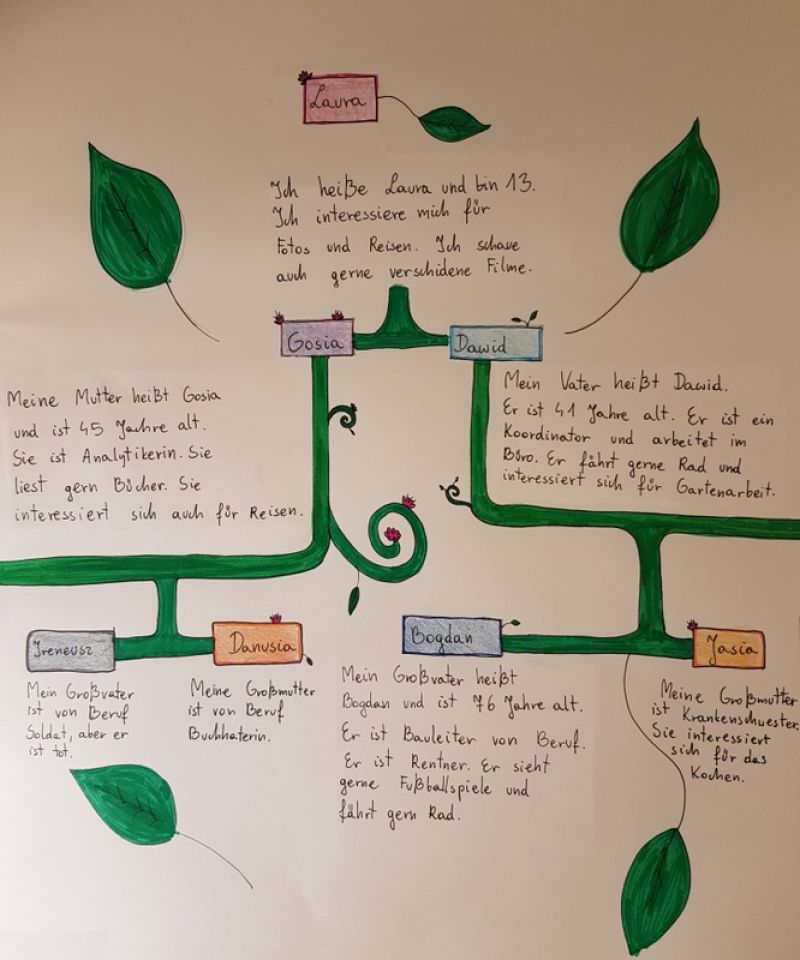 Laura
Ich heiße Laura und bin 13.
Ich interessiere mich für
Fotos und Reisen. Ich schaue
auch gerne verschidene Filme.
Gosia
Dawid
Meine Mutter heißt Gosia
und ist 45 Jachre alt.
Sie ist Analytikerin. Sie
liest gern Bücher. Sie
interessiert sich auch für Reisen.
Mein Vater heißt Dawid.
Er ist 41 Jahre alt. Er ist ein
Koordinator und arbeitet im
Büro. Er fährt gerne Rad und
interessiert sich für Gartenarbeit.
Ireneusz
Danusia
Bogdan
Jasia
Mein Großvater
ist von Beruf
Soldat, aber er
ist tot.
Meine Großmutter
ist von Beruf
Buchhaterin.
Mein Großvater heißt
Bogdan und ist 76 Jahre alt.
Er ist Bauleiter von Beruf.
Er ist Rentner. Er sieht
gerne Fußballspiele und
fährt gern Rad.
Meine Großmutter
ist Krankenschuester.
Sie interessiert
sich für das
Kochen.